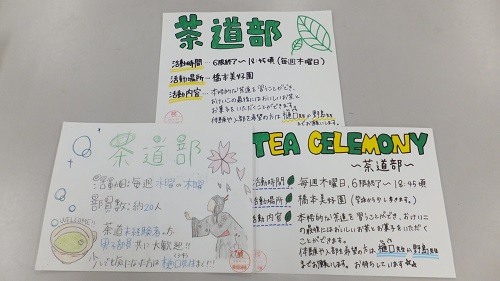 茶道部
活動時間…6限終了～18:45頃(毎週木曜日)
活動場所…橋本美好園
活動内容…本格的な茶道を習うことができ、
おけいこの最後にはおいしいお茶と
お菓子をいただくことができます。
体験や入部を希望の方は樋口先生か野島先生
までお願いします。
茶道部
活動日:毎週 木曜
部員数:約20人
WELCOME!!
茶道未経験者
男子部員 共に大歓迎!!
樋口先生まで!!!
TEA CELEMONY
～茶道部～
活動時間 毎週木曜日、6限終了～18:45頃
活動場所 橋本美好園
活動内容 本格的な茶道を習うことができ、おけいこ
の最後にはおいしいお茶とお菓子をいただく
ことができます。
体験や入部を希望の方は樋口先生か野島先生
までお願いします。お待ちしています